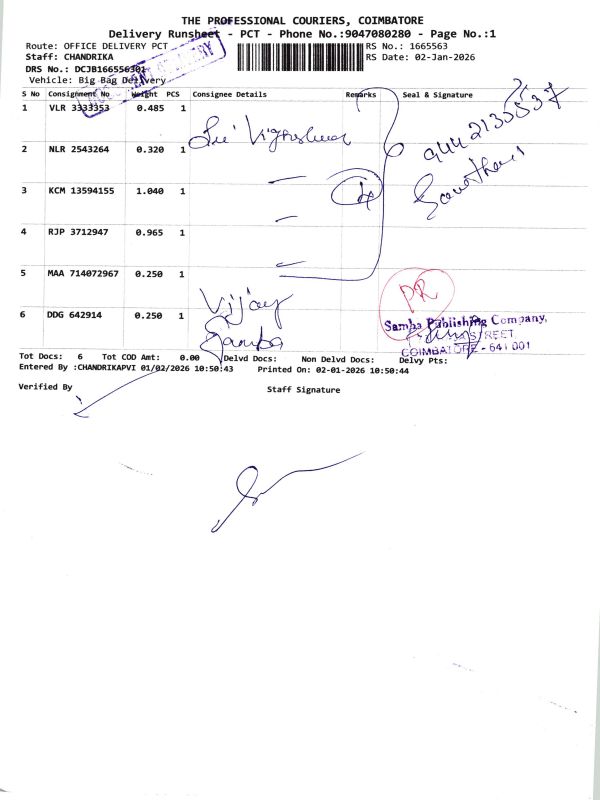 THE PROFESSIONAL COURIERS, COIMBATORE
Delivery Runsheet - PCT - Phone No.:9047080280 - Page No.:1
Route: OFFICE DELIVERY PCT RS No.: 1665563
Staff: CHANDRIKA RS Date: 02-Jan-2026
DRS No.: DCJB166556301
Vehicle: Big Bag Delivery
S No Consignment No Weight PCS Consignee Details Remarks Seal & Signature
1 VLR 3333353 0.485 1
9442135537
2 NLR 2543264 0.320 1 Sri Vighshwar
3 KCM 13594155 1.040 1
4 RJP 3712947 0.965 1
5 MAA 714072967 0.250 1 Vijay
PR
6 DDG 642914 0.250 1 Samba
Samba Publishing Company,
STREET,
COIMBATORE - 641 001
Tot Docs: 6 Tot COD Amt: 0.00 Delvd Docs: Non Delvd Docs: Delvy Pts:
Entered By :CHANDRIKAPVI 01/02/2026 10:50:43 Printed On: 02-01-2026 10:50:44
Verified By Staff Signature